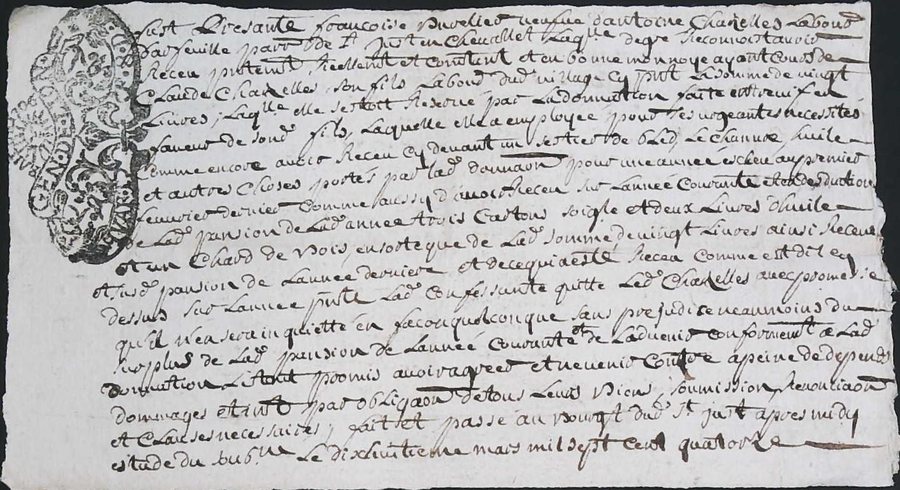 GEN. DE LYON
Fust presante françoise vuvelier veufue d'antoine Charelles Labour
par feuille parr de St Just en Cheuallet Laqlle de gre Reconnoist auoir
Receu putemt Reellemt et contant et en bonne monnoye ayant Cours de
Claude Charelles son fils Labour dud village Cy pnt La somme de vingt
Liures, Laqlle elle sestoit Reserué par La donnation faite entre vif en
faueur de sond fils, Laquelle elle a employée pour ses urgeantes necessités
Comme encore auoir Receu cy deuant un sestier de bled, Le channure huile
et autres Choses portés par lad donnaon pour une année escheu au premier
feurier dernier Comme aussy d'auoir Receu sur Lannée Courante et a deduction
de Lad pansion de Lad année trois Cartons soigle et deux Liures d'huile
et un Chard de bois, en sorte que de Lad somme de vingt Liures ainsi Receue
et susd pansion de Lannée derniere et de ce qui a esté Receu Comme est dit cy
dessus sur Lannée pnte Lad Confessante quitte Led Charelles auec promesse
qu'il n'en sera inquietté en façon quelconque sans prejudice neaumoins du
surplus de Lad pension de Lannée Courante et de Laduenir Conformemt a Lad
donnation Listout promis auoir agrees et ne uenir Contre a peine de depends
dommages et intt par obligaon de tous Leurs biens, soumission Renonciaon
et Clauses necessaires, fait et passé au bourgt dud St Just apres midy
estude du soubne Le dixhuitieme mars mil sept cent quatorze